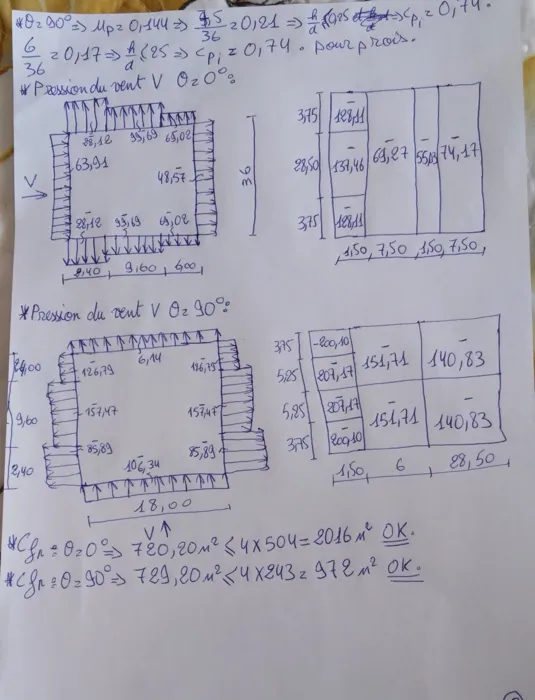 *θ=90° ⇒ μp=0,144 ⇒ 7,5/36=0,21 ⇒ h/d<0,25 ⇒ cpi=0,74.
6/36=0,17 ⇒ h/d<25 ⇒ cpi=0,74. pour p rois.
* Pression du vent V θ=0°:
28,12 95,69 65,02
63,91
48,57
V
28,12 95,69 65,02
2,40 9,60 6,00
36
3,75 128,11
28,50 137,46 69,27 55,19 74,17
3,75 128,11
1,50 7,50 1,50 7,50
* Pression du vent V θ=90°:
6,14
6,00 126,79 126,79
9,60 157,47 157,47
2,40 85,89 85,89
106,34
18,00
V
3,75 200,10 151,71 140,83
5,25 207,17
5,25 207,17 151,71 140,83
3,75 200,10
1,50 6 28,50
*Cfr: θ=0° ⇒ 720,20m² ≤ 4×504=2016 m² OK.
*Cfr: θ=90° ⇒ 729,20m² ≤ 4×243=972 m² OK.